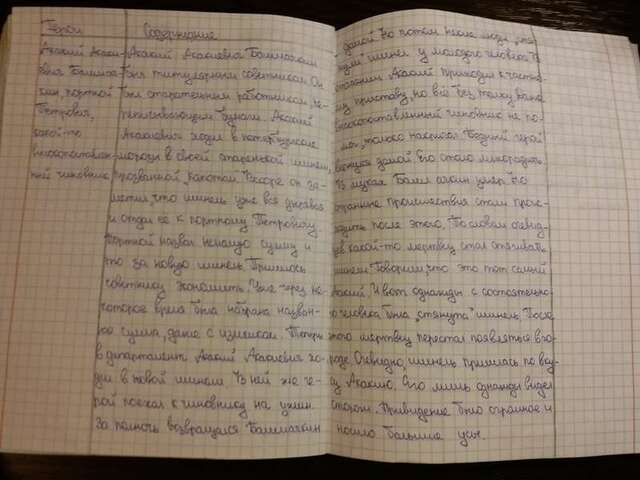 Герои Содержание
Акакий Акаки- Акакий Акакиевич Башмачкин
евич Башмач- был титулярным советником. Он
кин, портной был старательным работником, пе-
Петрович, реписывающим бумаги. Акакий
какой-то Акакиевич ходил в
высокопоставлен- мороза в своей старенькой шинели,
ный чиновник прозванной „капотом". Вскоре он за-
метил, что шинель уже вся
и отдал её к портному Петровичу.
Портной назвал немалую сумму и
то за новую шинель. Пришлось
советнику экономить. Уже через не-
которое время была набрана назван-
ная сумма, даже с излишком. Теперь
в департамент Акакий Акакиевич хо-
дил в новой шинели. В ней же ге-
рой поехал к чиновнику на ужин.
За полночь возвращался Башмачкин
домой. Но потом некие люди
шинель у молодого человека. В
Акакий приходил к частно-
му приставу, но всё без толку. Даже
высокопоставленный чиновник не по-
мог, только накричал. Бедный герой
вернулся домой. Его стало лихорадить.
В муках Башмачкин умер. Но
странные происшествия стали проис-
ходить после этого. По словам очевид-
цев какой-то мертвец стал отнимать
шинели. Говорили, что это тот самый
Акакий. И вот однажды с состоятельно-
го человека была „стянута" шинель. После
этого мертвец перестал появляться в го-
роде. Очевидно, шинель пришлась по вку-
су Акакию. Его лишь однажды видел
сторож. Привидение было страшное и
носило большие усы.